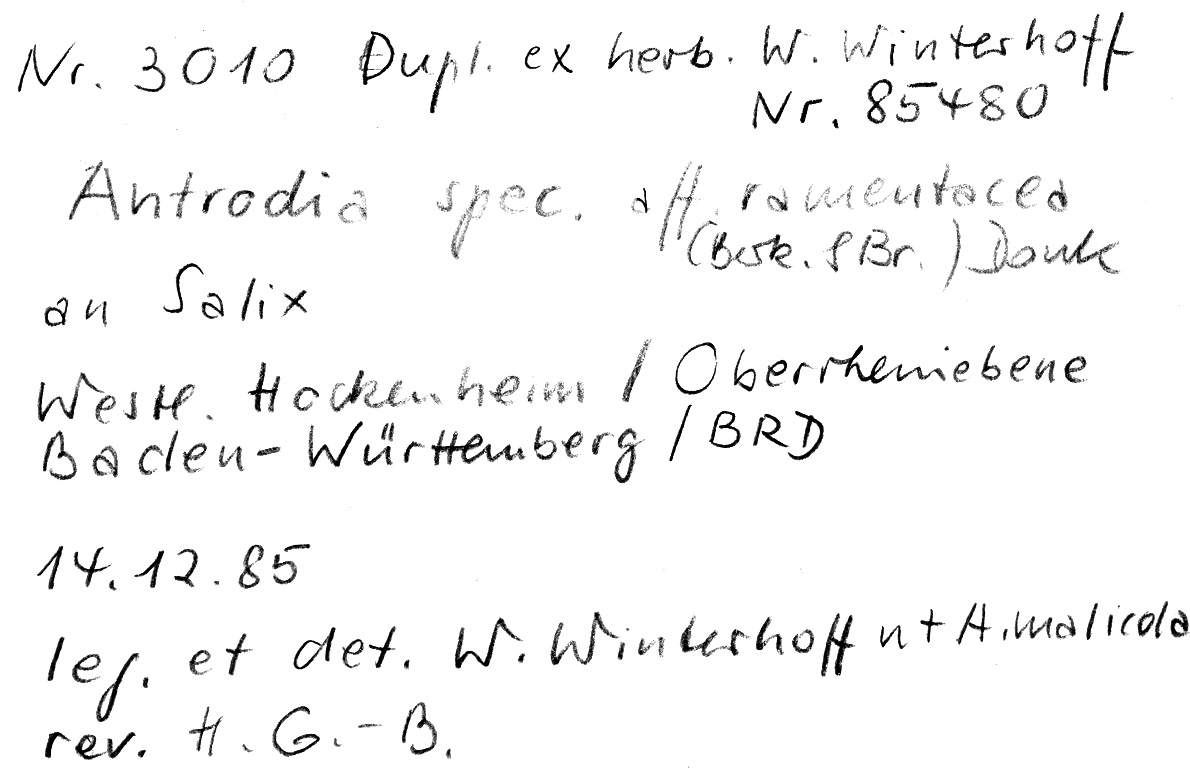 Nr. 3010 Dupl. ex herb. W. Winterhoff
Nr. 85480
Antrodia spec. aff. ramentacea
(Berk. & Br.) Donk
an Salix
Westl. Hockenheim / Oberrheniebene
Baden-Württemberg / BRD
14.12.85
leg. et det. W. Winterhoff n+ A. malicola
rev. H. G.-B.